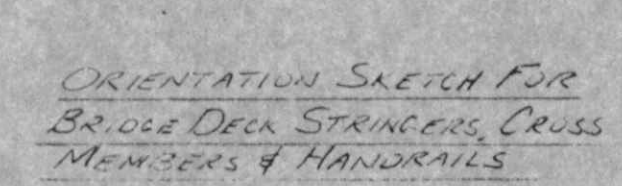 ORIENTATION SKETCH FOR
BRIDGE DECK STRINGERS, CROSS
MEMBERS & HANDRAILS